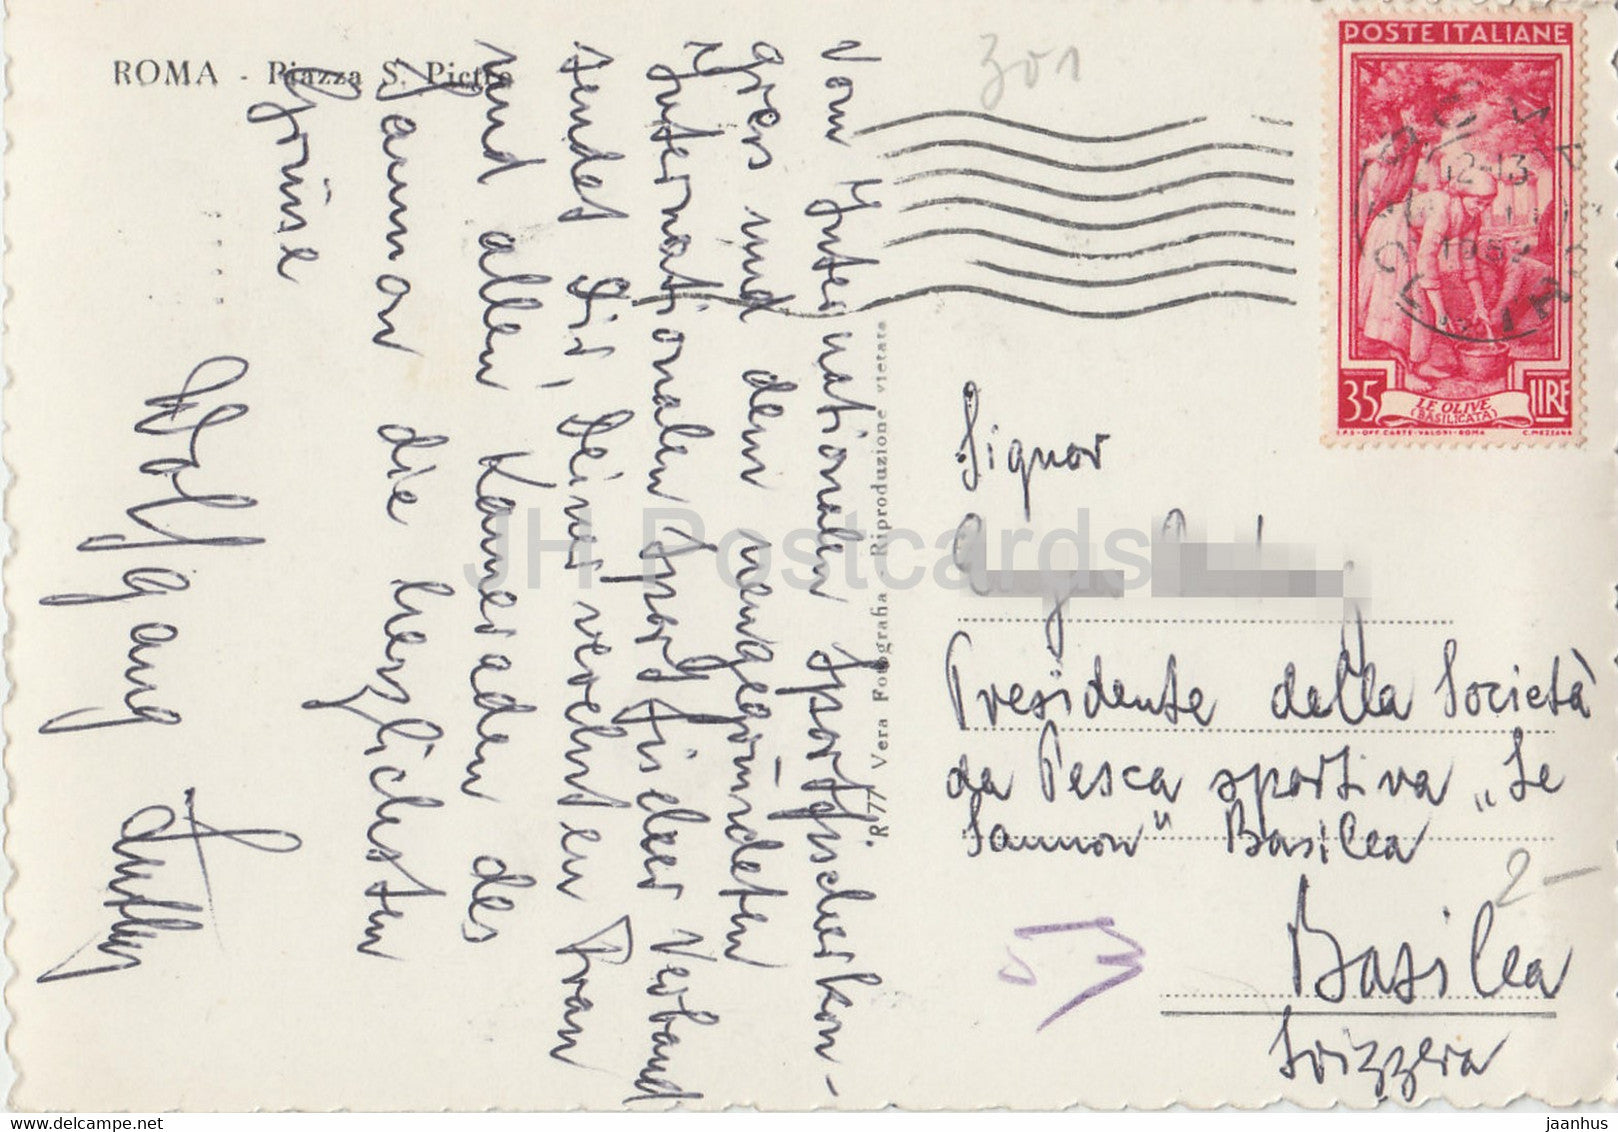 ROMA - Piazza S. Pietro
301
Vom Internationalen Sportfischerkon-
gress und dem neugegründeten
Internationalen Sportfischer Verband
sendet Dir, Deiner verehrten Frau
und allen Kameraden des
Saumon die herzlichsten
Grüsse
Wolfgang
R/77. Vera Fotografia Riproduzione vietata
POSTE ITALIANE
35 LIRE
LE OLIVE
(BASILICATA)
I.P.S-OFF. CARTE-VALORI-ROMA C. MEZZANA
12-13
Signor
Presidente della Società
da Pesca sportiva „Le
Saumon" Basilea
Basilea
Svizzera
2-
JH Postcards
jaanhus www.delcampe.net